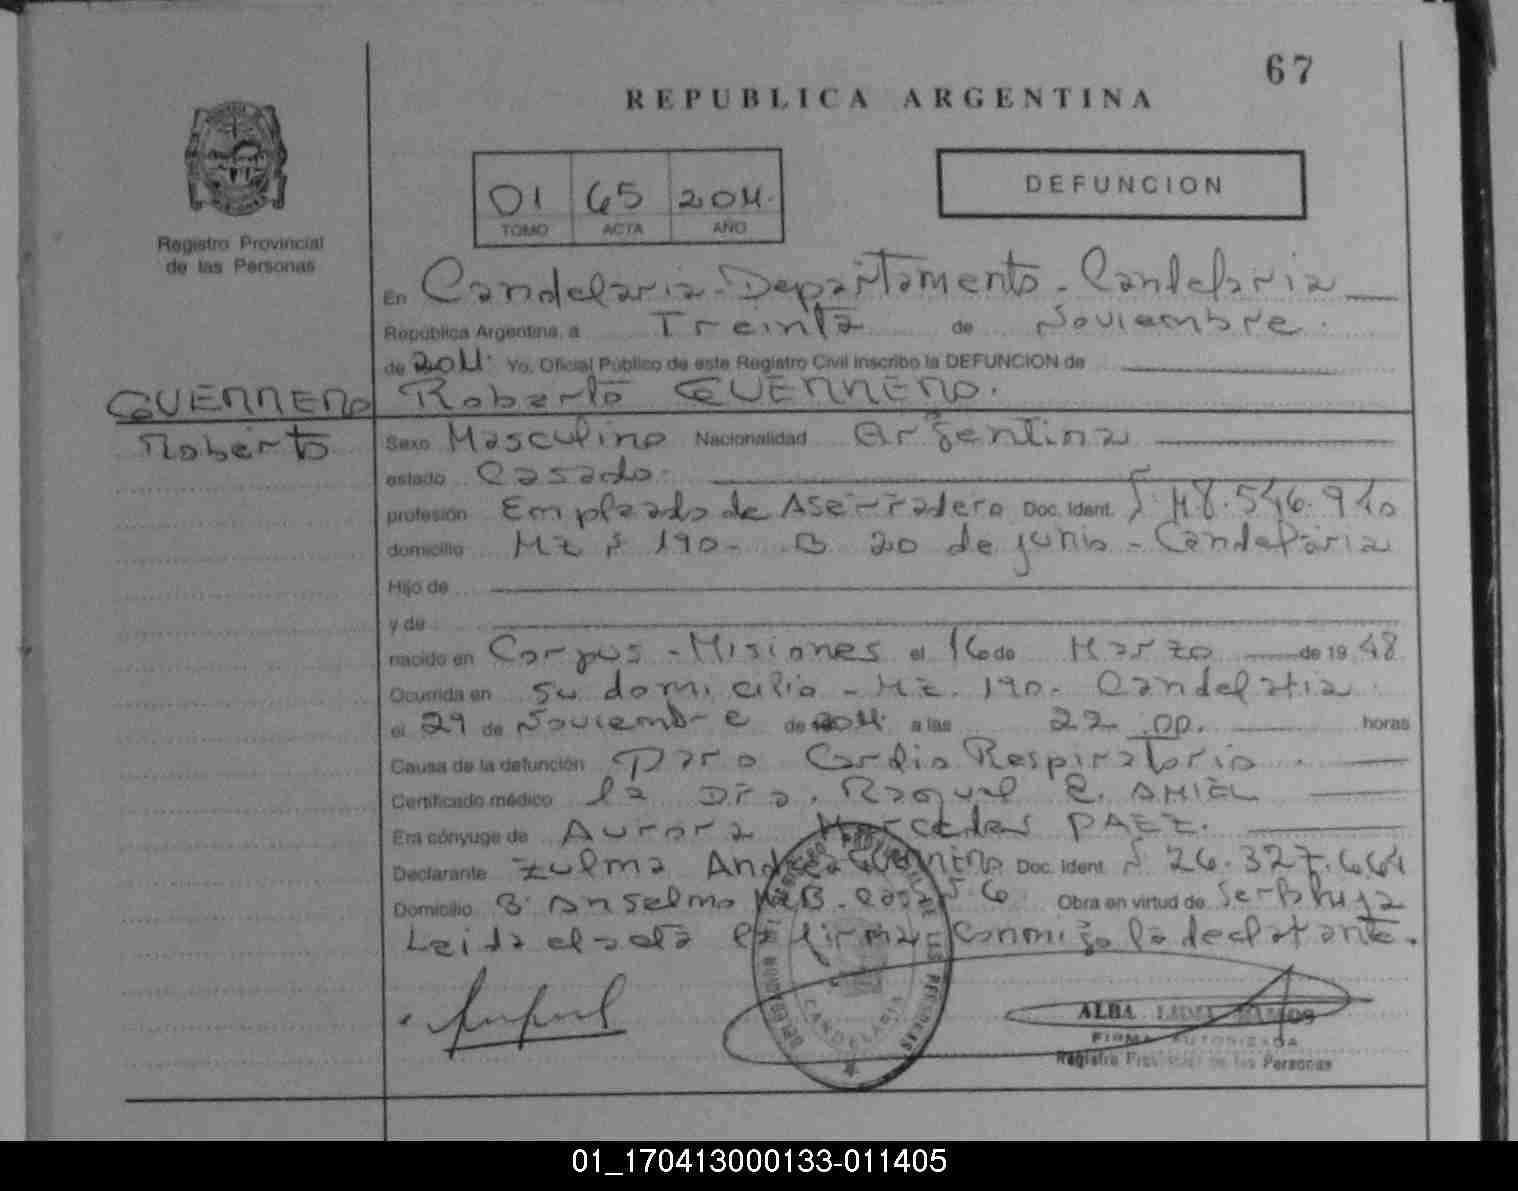 67
REPUBLICA ARGENTINA
Registro Provincial
de las Personas
01 65 2011.
TOMO ACTA AÑO
DEFUNCION
En Candelaria - Departamento - Candelaria
República Argentina, a Treinta de Noviembre.
de 2011. Yo, Oficial Público de este Registro Civil inscribo la DEFUNCION de
GUERRERO Roberto GUERRERO.
Roberto
Sexo Masculino Nacionalidad Argentina
estado Casado.
profesión Empleado de Aserradero Doc. Ident. M8.546.910
domicilio Mz Nº 190 - B 20 de junio - Candelaria
Hijo de
y de
nacido en Corpus - Misiones el 16 de Marzo de 19 48
Ocurrida en su domicilio - Mz. 190. Candelaria.
el 29 de Noviembre de 2011. a las 22.00. horas
Causa de la defunción Paro Cardio Respiratorio.
Certificado médico la Dra. Raquel E. AMIEL
Era cónyuge de Aurora Mercedes PAEZ.
Declarante Zulma Andrea Guerrero Doc. Ident. Nº 26.327.664
Domicilio Bº Anselmo casa Nº 6 Obra en virtud de Ser hija
Leida el acta la firma conmigo la declarante.
CANDELARIA
ALBA RAMOS
FIRMA AUTORIZADA
Registro Provincial de las Personas
01_170413000133-011405